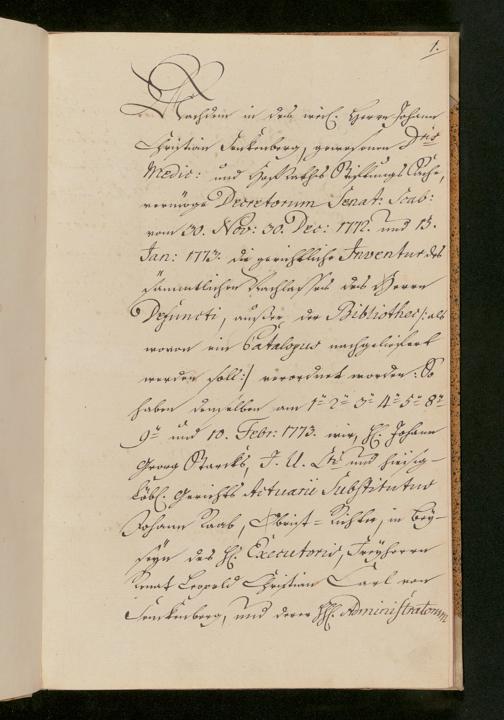 1.
Nachdem in des weil. Herrn Johann
Christian Senckenberg, gewesenen Dris
Medic: und HofRaths Stiftungs Sache,
vermöge Decretorum Senat: Scab:
vom 30. Nov: 30. Dec: 1772. und 13.
Jan: 1773. die gerichtliche Inventur des
sämmtlichen Nachlasses des Herrn
Defuncti, außer der Bibliothec /: als
wovon ein Catalogus nachgeliefert
werden soll :/ verordnet worden: So
haben demselben am 1n 2n 3n 4n 5n 8n
9n und 10. Febr: 1773. wir, H. Johann
Georg Starck, J. U. Lt und hiesig-
löbl. Gerichts Actuarii Substitutus
Johann Raab, Obrist-Richter, in Bey-
seyn des H. Executoris, Freyherrn
Renat Leopold Christian Carl von
Senckenberg, und derer HH. Administratorum